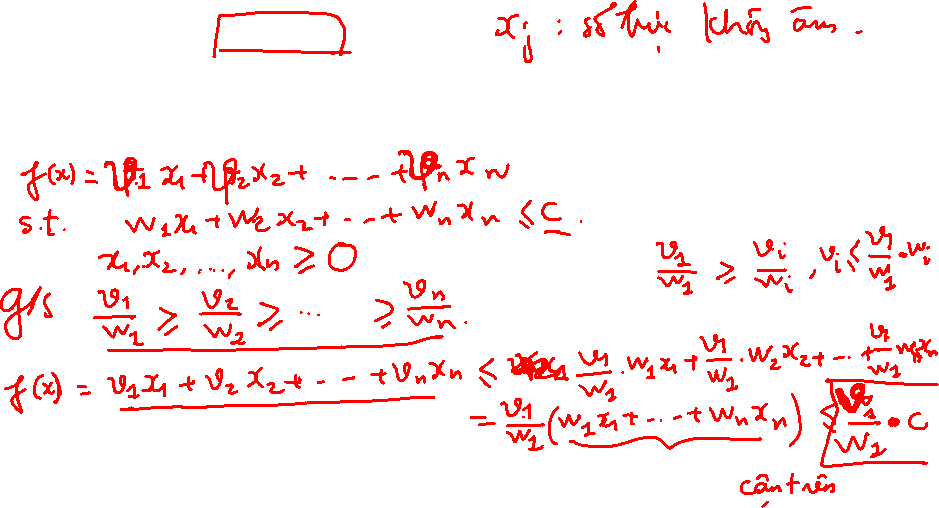 x_j : số thực không âm.
f(x) = v_1 x_1 + v_2 x_2 + ... + v_n x_n
s.t. w_1 x_1 + w_2 x_2 + ... + w_n x_n ≤ C.
x_1, x_2, ..., x_n ≥ 0
g/s v_1/w_1 ≥ v_2/w_2 ≥ ... ≥ v_n/w_n.
v_1/w_1 ≥ v_i/w_i, v_i ≤ v_1/w_1 · w_i
f(x) = v_1 x_1 + v_2 x_2 + ... + v_n x_n ≤ v_1/w_1 · w_1 x_1 + v_1/w_1 · w_2 x_2 + ... + v_1/w_1 w_n x_n
= v_1/w_1 (w_1 x_1 + ... + w_n x_n) ≤ v_1/w_1 · C
cận trên